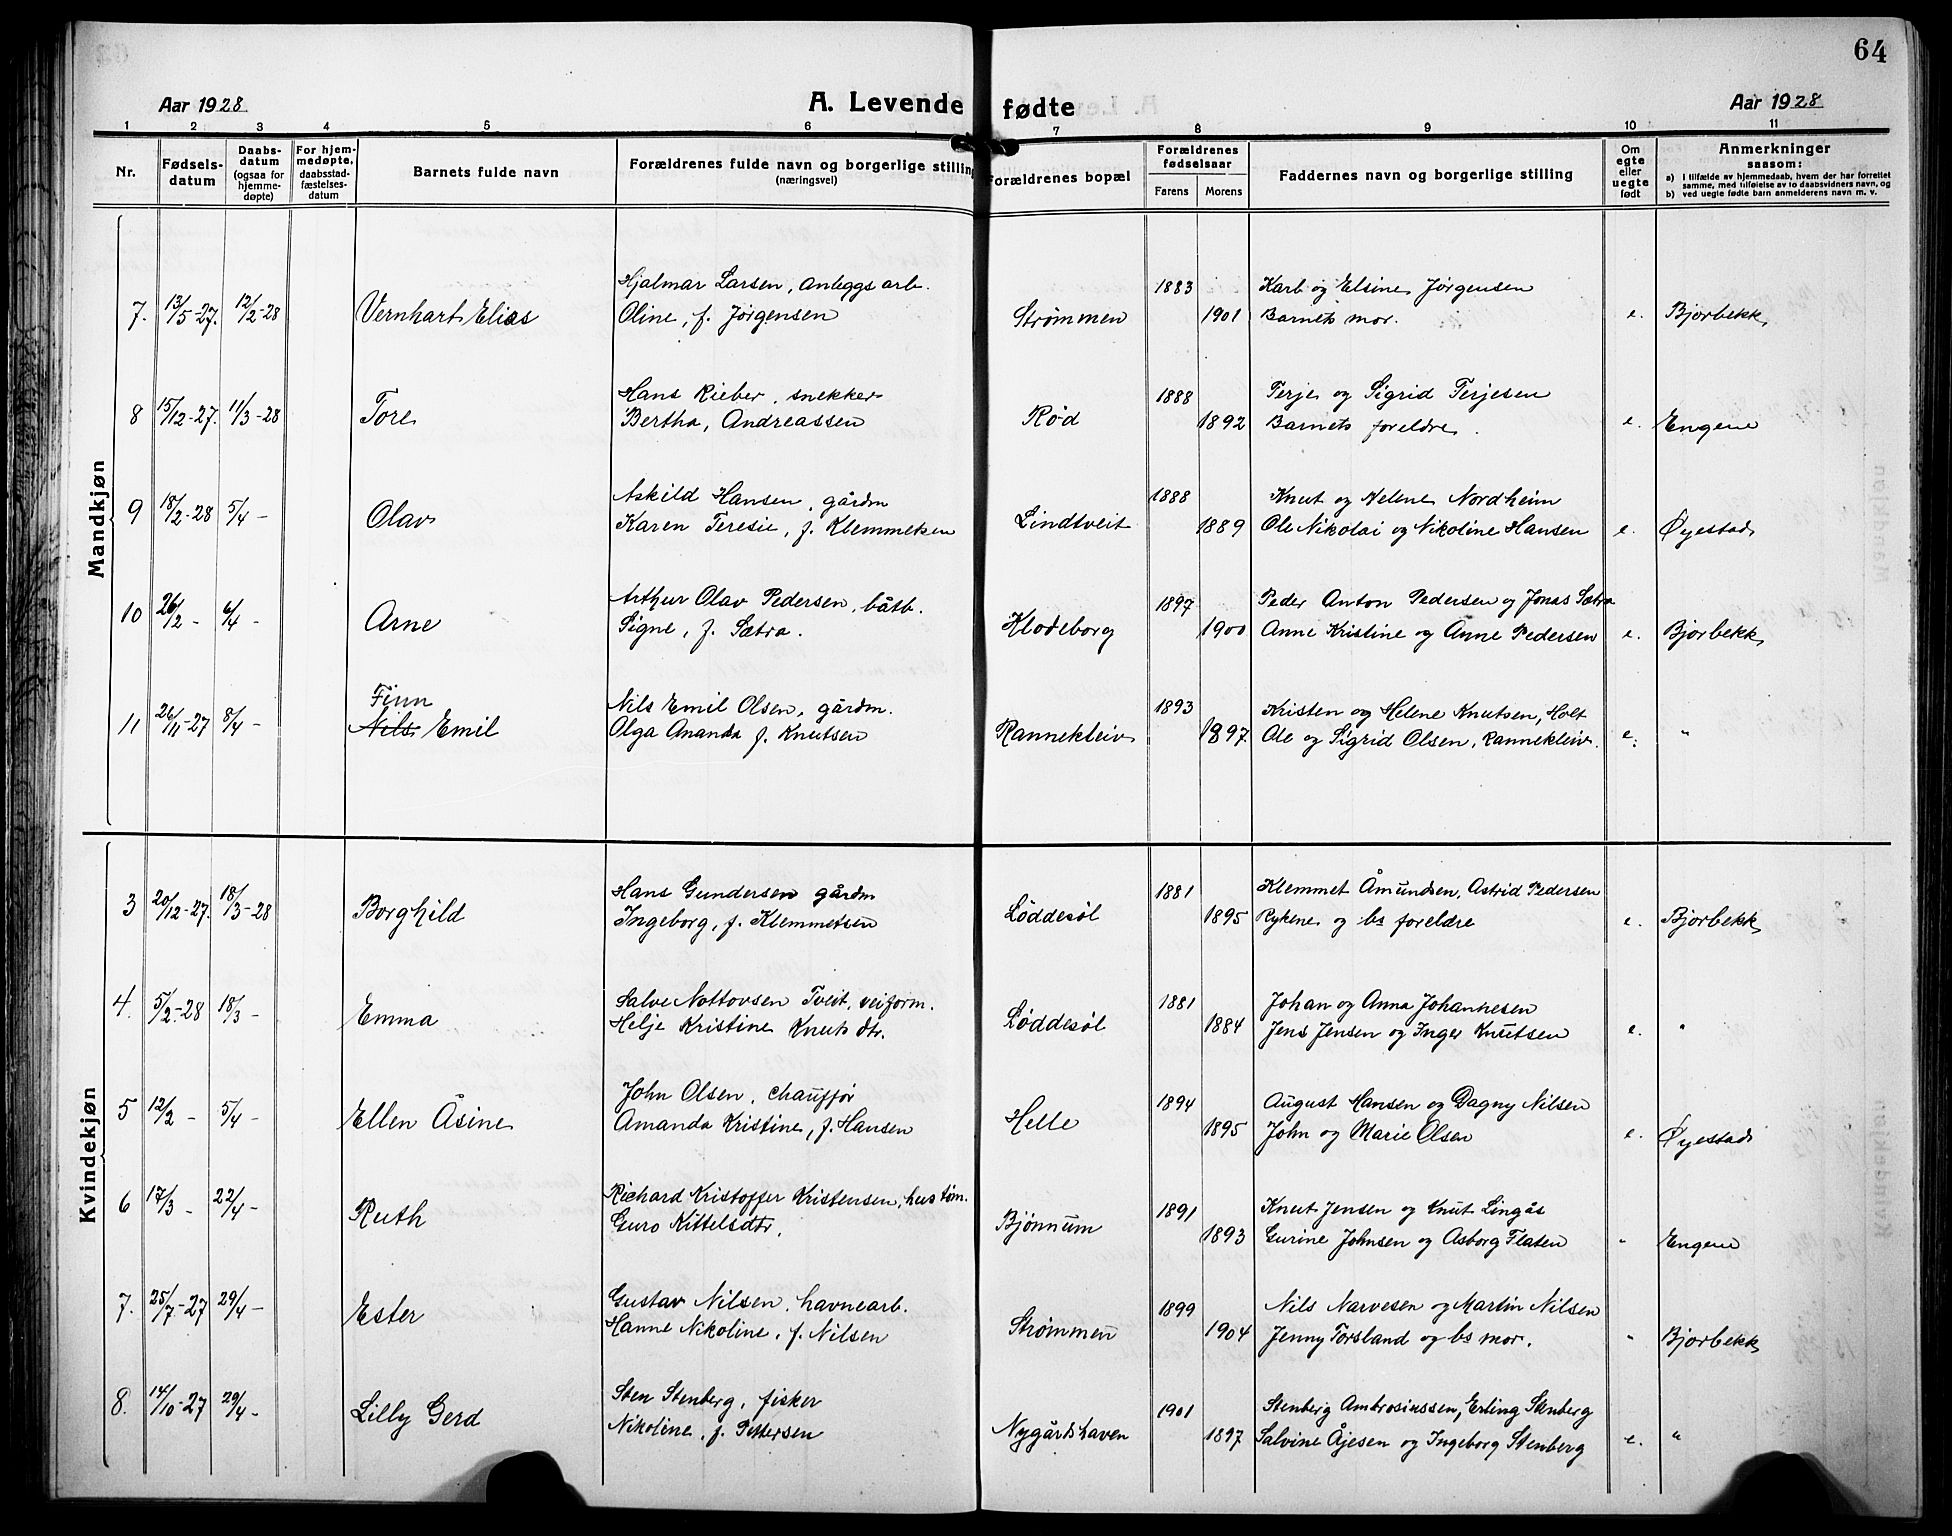 64
Aar 1928
A. Levende fødte
Aar 1928
1 2 3 4 5 6 7 8 9 10 11
Nr.
Fødsels-
datum
Daabs-
datum
(ogsaa for
hjemme-
døpte)
For hjem-
medøpte,
daabsstad-
fæstelses-
datum
Barnets fulde navn
Forældrenes fulde navn og borgerlige stilling
(næringsvei)
Forældrenes bopæl
Forældrenes
fødselsaar
Farens Morens
Faddernes navn og borgerlige stilling
Om
egte
eller
uegte
født
Anmerkninger
saasom:
a) I tilfælde av hjemmedaab, hvem der har forrettet
samme, med tilføielse av to daabsvidners navn, og
b) ved uegte fødte barn anmelderens navn m. v.
Mandkjøn
Hjalmar Larsen, anleggsarb. 1883 Karl og Elsine Jørgensen
7. 13/5-27. 12/2-28 Vernhart Elias Oline, f. Jørgensen Strømmen 1901 Barnets mor. e. Bjorbekk
Hans Rieber, snekker 1888 Terje og Sigrid Terjesen
8 15/12-27. 11/3-28 Tore Bertha, Andreassen Rød 1892 Barnets foreldre. e. Engene
Askild Hansen, gårdm 1888 Knut og Helene Nordheim
9 18/2-28 5/4- Olav Karen Teresie, f. Klemmetsen Lindtveit 1889 Ole Nikolai og Nikoline Hansen e. Øyestad
Arthur Olav Pedersen, båtb. 1897 Peder Anton Pedersen og Jonas Sætra
10 26/2- 6/4- Arne Signe, f. Sætra. Klodeborg 1900 Anne Kristine og Anne Pedersen e. Bjorbekk
Finn Nils Emil Olsen, gårdm. 1893 Kristen og Helene Knutsen, Holt
11 26/11-27 8/4- Nils Emil Olga Ananda f. Knutsen Rannekleiv 1897 Ole og Sigrid Olsen, Rannekleiv. e. "
Kvindekjøn
Hans Gundersen gårdm 1881 Klemmet Åmundsen, Astrid Pedersen
3 20/12-27. 18/3-28 Borghild Ingeborg, f. Klemmetsen Løddesøl 1895 Rykene og bs foreldre e. Bjorbekk
Salve Nottovsen Tveit, veiform. 1881 Johan og Anna Johannesen
4. 5/2-28 18/3- Emma Helje Kristine Knuts dtr. Løddesøl 1884 Jens Jensen og Inger Knutsen e. "
John Olsen, chauffør 1894 August Hansen og Dagny Nilsen
5 12/2- 5/4- Ellen Åsine Amanda Kristine, f. Hansen Helle 1895 John og Marie Olsen e. Øyestad
Richard Kristoffer Kristensen, hustøm. 1891 Knut Jensen og Knut Lingås
6 17/3- 22/4- Ruth Guro Kittelsdtr. Bjønnum 1893 Gurine Johnsen og Asborg Flaten " Engene
Gustav Nilsen, havnearb. 1899 Nils Narvesen og Martin Nilsen
7. 25/7-27 29/4- Ester Hanne Nikoline, f. Nilsen Strømmen 1904 Jenny Torsland og bs mor. " Bjorbekk
Sten Stenberg, fisker 1901 Stenberg Ambrosiussen, Erling Stenberg
8. 14/10-27 29/4- Lilly Gerd Nikoline, f. Pettersen Nygårdshaven 1897 Salvine Åjesen og Ingeborg Stenberg e. "